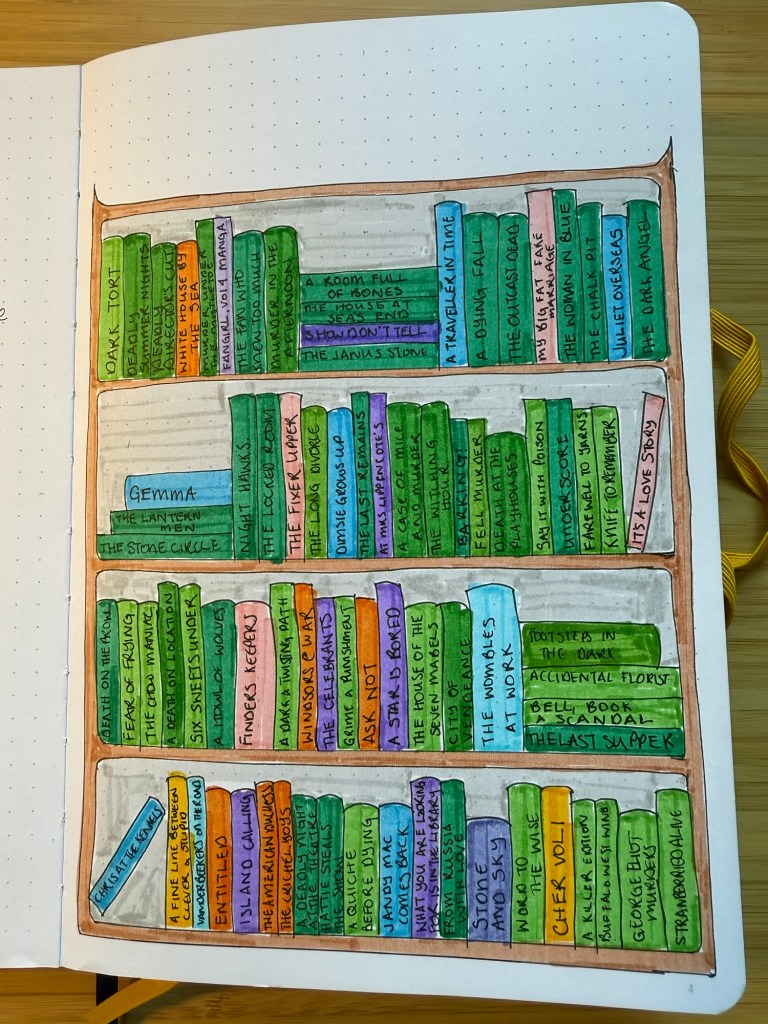 DARK TORT
DEADLY
SUMMER NIGHTS
DEADLY
WHITE HOUSE BY
THE SEA
MURDER UNDER
FANGIRL, VOL 4 MANGA
THE FAN WHO
KNEW TOO MUCH
MURDER IN THE
AFTERNOON
A ROOM FULL
OF BONES
THE HOUSE AT
SEA'S END
SHOW DON'T TELL
THE JANUS STONE
A TRAVELLER IN TIME
A DYING FALL
THE OUTCAST DEAD
MY BIG FAT FAKE
MARRIAGE
THE WOMAN IN BLUE
THE CHALK PIT
JULIET OVERSEAS
THE DARK ANGEL
GEMMA
THE LANTERN
MEN
THE STONE CIRCLE
NIGHT HAWKS
THE LOCKED ROOM
THE FIXER UPPER
THE LONG DIVORCE
DIMSIE GROWS UP
THE LAST REMAINS
AT MRS LIPPINCOTE'S
A CASE OF MICE
AND MURDER
THE WITCHING
HOUR
BARKING!
FELL MURDER
DEATH AT THE
PLAYHOUSES
SAY IT WITH POISON
UNDERSCORE
FAREWELL TO YARNS
KNIFE TO REMEMBER
IT'S A LOVE STORY
DEATH ON THE PROWL
FEAR OF FRYING
THE CHOW MANIAC
A DEATH ON LOCATION
SIX SWEETS UNDER
A HOWL OF WOLVES
FINDERS KEEPERS
A DARK & TWISTING PATH
WINDSORS @ WAR
THE CELEBRANTS
GRIME & PUNISHMENT
ASK NOT
A STAR IS BORED
THE HOUSE OF THE
SEVEN MABELS
CITY OF
VENGEANCE
THE WOMBLES
AT WORK
FOOTSTEPS IN
THE DARK
ACCIDENTAL FLORIST
BELL, BOOK
& SCANDAL
THE LAST SUPPER
CHRIS AT THE KENNELS
A FINE LINE BETWEEN
CLEVER & STUPID
VANDERBEEKERS ON THE ROAD
ENTITLED
ISLAND CALLING
THE AMERICAN DUCHESS
THE CRICHEL BOYS
A DEADLY NIGHT
AT THE THEATRE
HATTIE STEALS
THE SHOW
A QUICHE
BEFORE DYING
JANDY MAC
COMES BACK
WHAT YOU ARE LOOKING
FOR IS IN THE LIBRARY
FROM RUSSIA
WITH LOVE
STONE
AND SKY
WORD TO
THE WISE
CHER VOL 1
A KILLER EDITION
BUFFALO WEST WING
GEORGE ELIOT
MURDERS
4